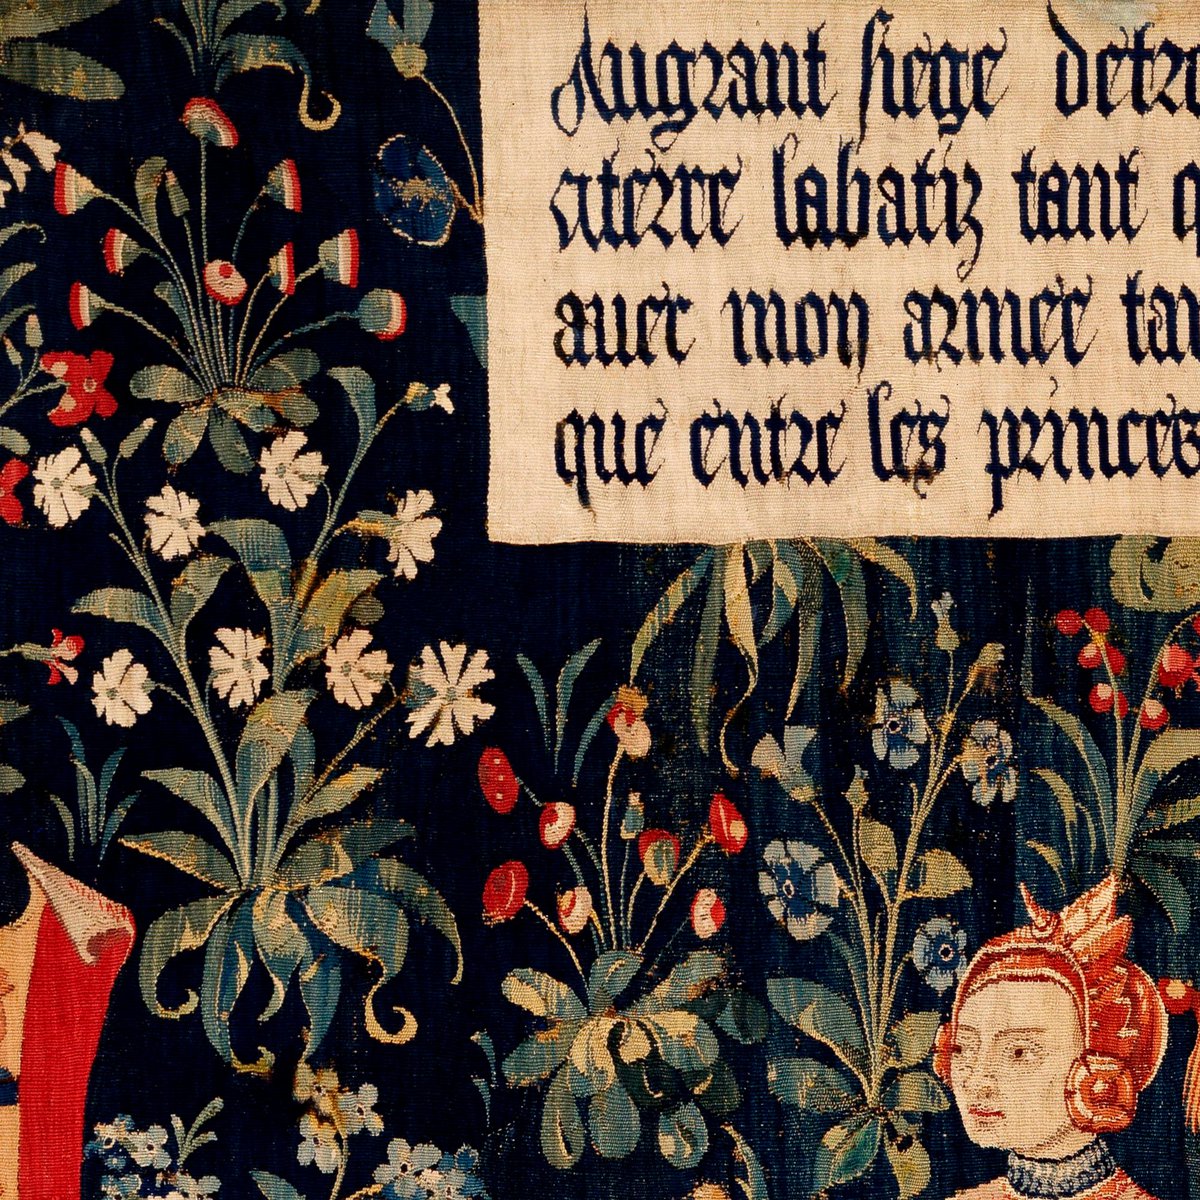 Augrant siege detr
aterre labatiz tant q
avec mon armee tan
que entre les princes